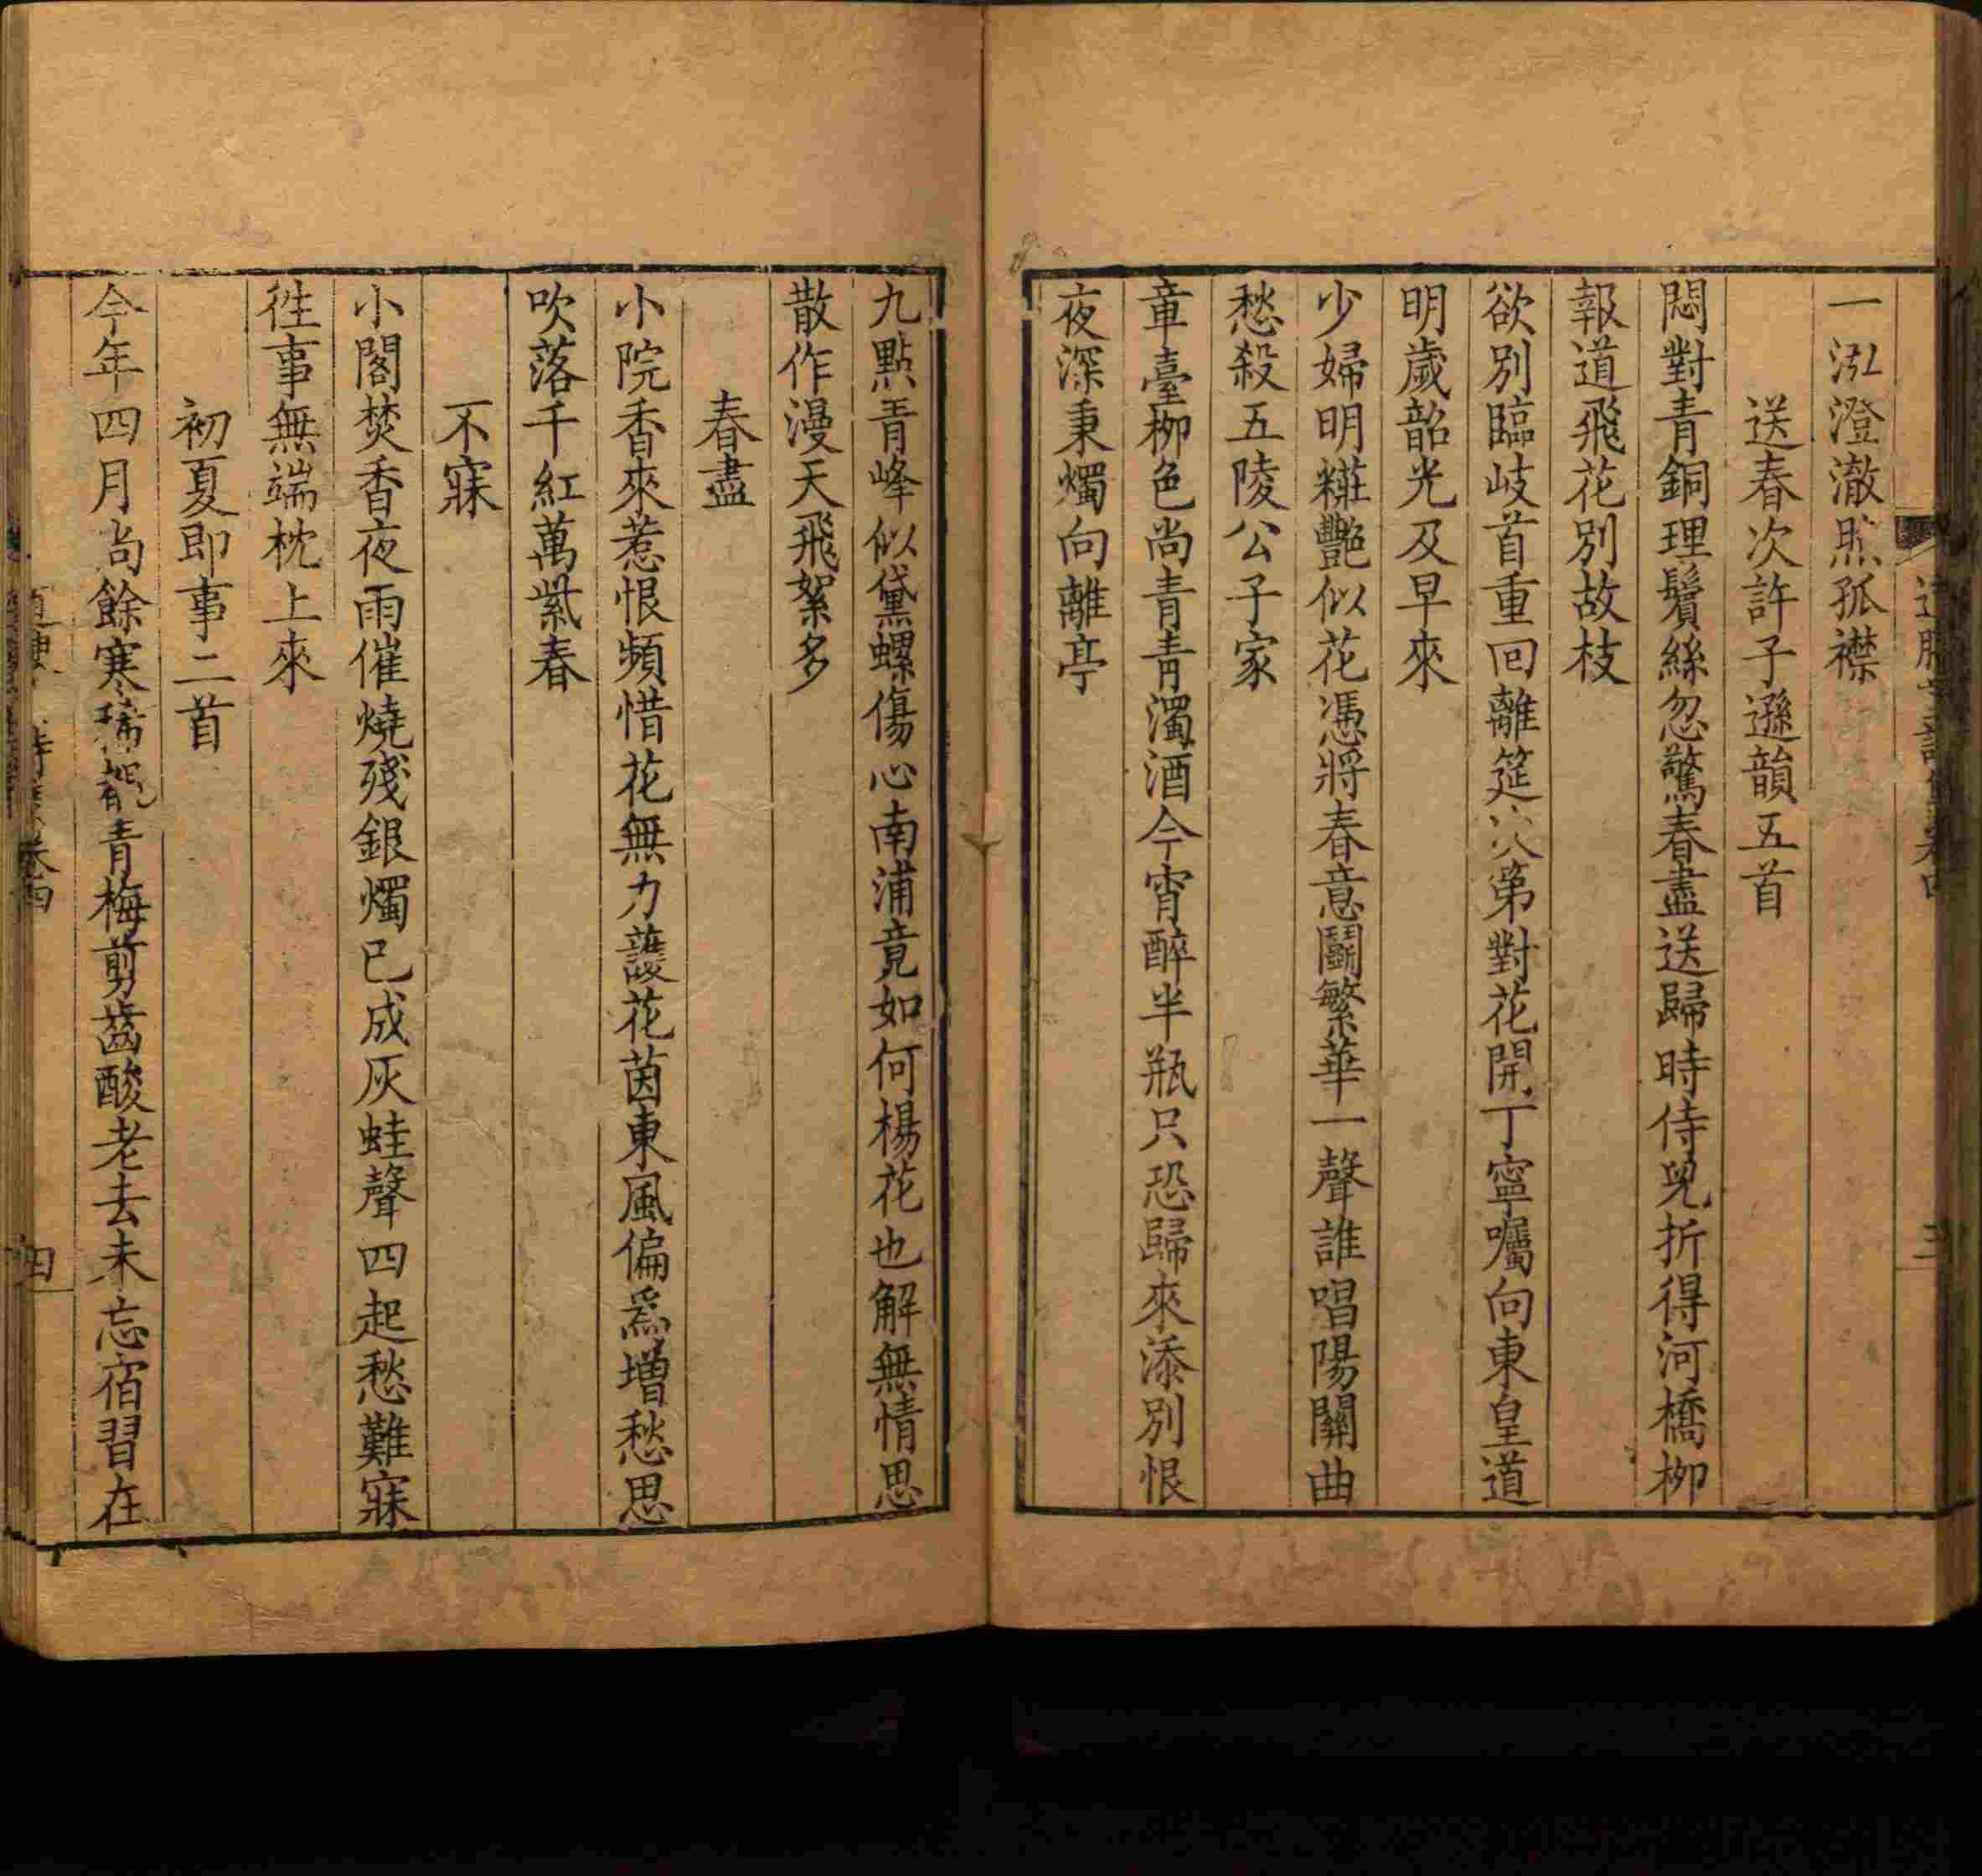 一泓澄澈炤孤襟
送春次許子遜韻五首
悶對青銅理鬢絲忽驚春盡送歸時侍兒折得河橋柳
報道飛花別故枝
欲別臨岐首重回離筵次第對花開丁寧囑向東皇道
明歲韶光及早來
少婦明糚艷似花憑將春意鬭繁華一聲誰唱陽關曲
愁殺五陵公子家
章臺柳色尚青青濁酒今宵醉半瓶只恐歸來添別恨
夜深秉燭向離亭
九點青峰似黛螺傷心南浦竟如何楊花也解無情思
散作漫天飛絮多
春盡
小院香來惹恨頻惜花無力護花茵東風偏爲增愁思
吹落千紅萬紫春
不寐
小閣焚香夜雨催燒殘銀燭已成灰蛙聲四起愁難寐
徃事無端枕上來
初夏即事二首
今年四月尚餘寒青梅剪齒酸老去未忘宿習在
卷四
四